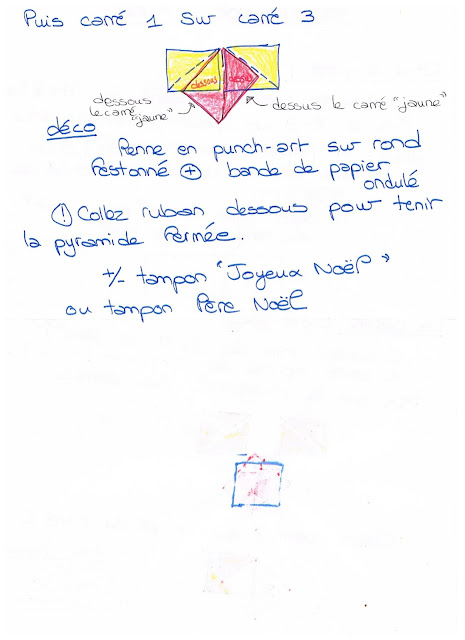 Puis carré 1 Sur carré 3
dessous dessus
dessous
le carré
"jaune"
dessous le carré "jaune"
déco
Renne en punch-art sur rond
festonné + bande de papier
ondulé
! Collez ruban dessous pour tenir
la pyramide fermée.
+/- tampon "Joyeux Noël"
ou tampon Père Noël